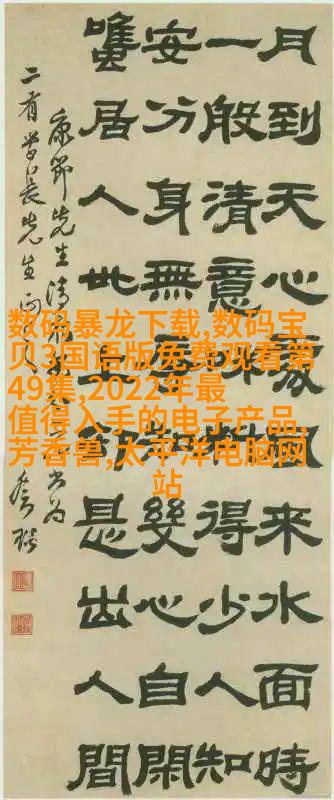 月到天心處風來水面時
一般清意味料得少人知
安分身無辱知幾心自閑
雖居人世上卻是出人間
康節先生清
二有學長先生正
数码暴龙下载,数码宝
贝3国语版免费观看第
49集,2022年最
值得入手的电子产品,
芳香兽,太平洋电脑网
站